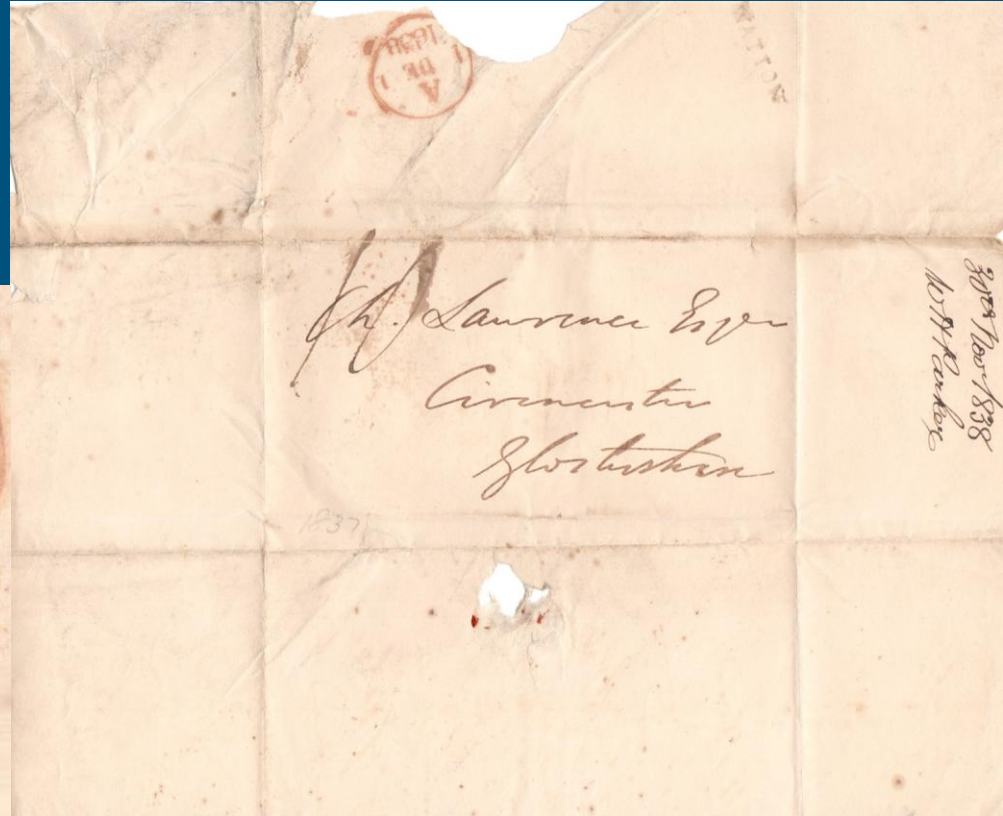 A
1 DE 1
1838
WATTON
Lawrence Esqr
Cirencester
Glostershire
30th Novr 1838
W H Parker
1837